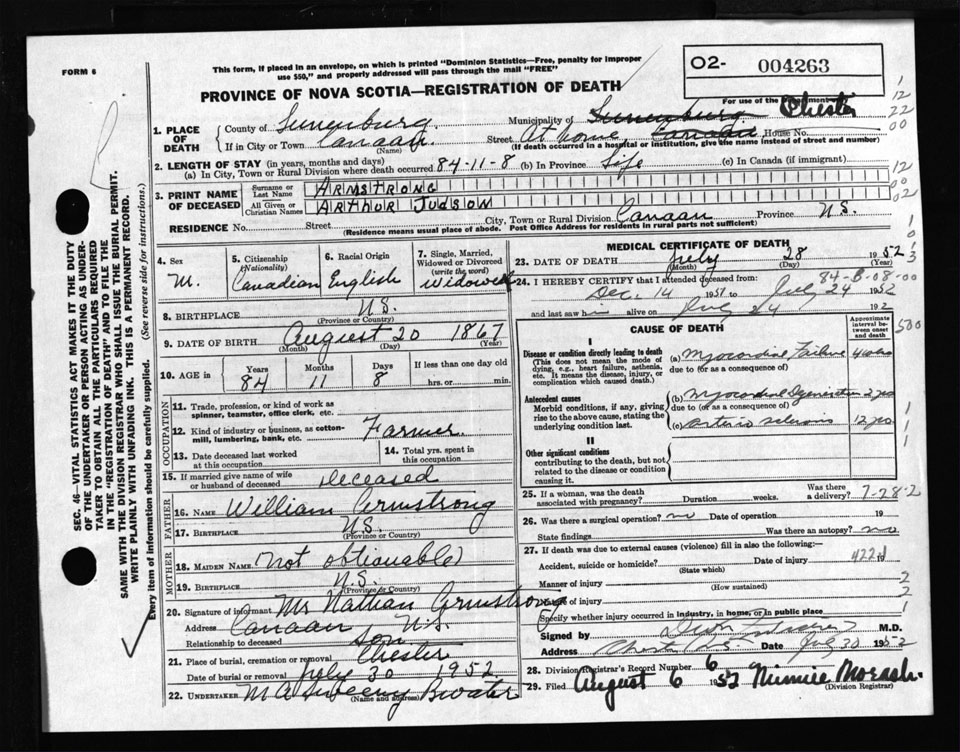 FORM 6
This form, if placed in an envelope, on which is printed "Dominion Statistics—Free, penalty for improper
use $50," and properly addressed will pass through the mail "FREE"
PROVINCE OF NOVA SCOTIA—REGISTRATION OF DEATH
O2- 004263
For use of the Department
1. PLACE OF DEATH
County of Lunenburg Municipality of Lunenburg Chester
If in City or Town Canaan (Name) Street At home Canaan House No.
(If death occurred in a hospital or institution, give the name instead of street and number)
2. LENGTH OF STAY (in years, months and days)
(a) In City, Town or Rural Division where death occurred 84-11-8 (b) In Province Life (c) In Canada (if immigrant)
3. PRINT NAME OF DECEASED
Surname or Last Name ARMSTRONG
All Given or Christian Names ARTHOR JUDSON
RESIDENCE No. Street City, Town or Rural Division Canaan Province N.S.
(Residence means usual place of abode. Post Office Address for residents in rural parts not sufficient)
4. Sex M.
5. Citizenship (Nationality) Canadian
6. Racial Origin English
7. Single, Married, Widowed or Divorced (write the word) Widowed
8. BIRTHPLACE N.S. (Province or Country)
9. DATE OF BIRTH August 20 1867
(Month) (Day) (Year)
10. AGE in Years 84 Months 11 Days 8 If less than one day old hrs. or min.
OCCUPATION
11. Trade, profession, or kind of work as spinner, teamster, office clerk, etc.
12. Kind of industry or business, as cotton-mill, lumbering, bank, etc. Farmer
13. Date deceased last worked at this occupation
14. Total yrs. spent in this occupation
15. If married give name of wife or husband of deceased Deceased
FATHER
16. NAME William Armstrong
17. BIRTHPLACE N.S. (Province or Country)
MOTHER
18. MAIDEN NAME (not obtionable)
19. BIRTHPLACE N.S. (Province or Country)
20. Signature of informant Mr Nathan Armstrong
Address Canaan N.S.
Relationship to deceased Son
21. Place of burial, cremation or removal Chester
Date of burial or removal July 30 1952
22. UNDERTAKER M A Sweeny Bwater
(Name and address)
MEDICAL CERTIFICATE OF DEATH
23. DATE OF DEATH July 28 1952
(Month) (Day) (Year)
24. I HEREBY CERTIFY that I attended deceased from:
Dec. 14 1951 to July 24 1952
and last saw h alive on July 24 192
CAUSE OF DEATH
Approximate interval between onset and death
I
Disease or condition directly leading to death
(This does not mean the mode of dying, e.g., heart failure, asthenia, etc. It means the disease, injury, or complication which caused death.)
(a) Myocardial Failure
due to (or as a consequence of)
Antecedent causes
Morbid conditions, if any, giving rise to the above cause, stating the underlying condition last.
(b) Myocardial Degeneration 2 yrs
due to (or as a consequence of)
(c) Arterio sclerosis 12 yrs
II
Other significant conditions
contributing to the death, but not related to the disease or condition causing it.
25. If a woman, was the death associated with pregnancy? Duration weeks. Was there a delivery?
7-28-2
26. Was there a surgical operation? no Date of operation 19
State findings Was there an autopsy? no
27. If death was due to external causes (violence) fill in also the following:—
Accident, suicide or homicide? (State which)
422.1
Manner of injury (How sustained)
Nature of injury
Specify whether injury occurred in industry, in home, or in public place
Signed by M.D.
Address Chester N.S. Date July 30 1952
28. Division Registrar's Record Number 6
29. Filed August 6 1952 Minnie Morash.
(Division Registrar)
SEC. 46—VITAL STATISTICS ACT MAKES IT THE DUTY
OF THE UNDERTAKER OR PERSON ACTING AS UNDER-
TAKER TO OBTAIN ALL THE PARTICULARS REQUIRED
IN THE "REGISTRATION OF DEATH" AND TO FILE THE
SAME WITH THE DIVISION REGISTRAR WHO SHALL ISSUE THE BURIAL PERMIT.
WRITE PLAINLY WITH UNFADING INK. THIS IS A PERMANENT RECORD.
Every item of information should be carefully supplied. (See reverse side for instructions.)